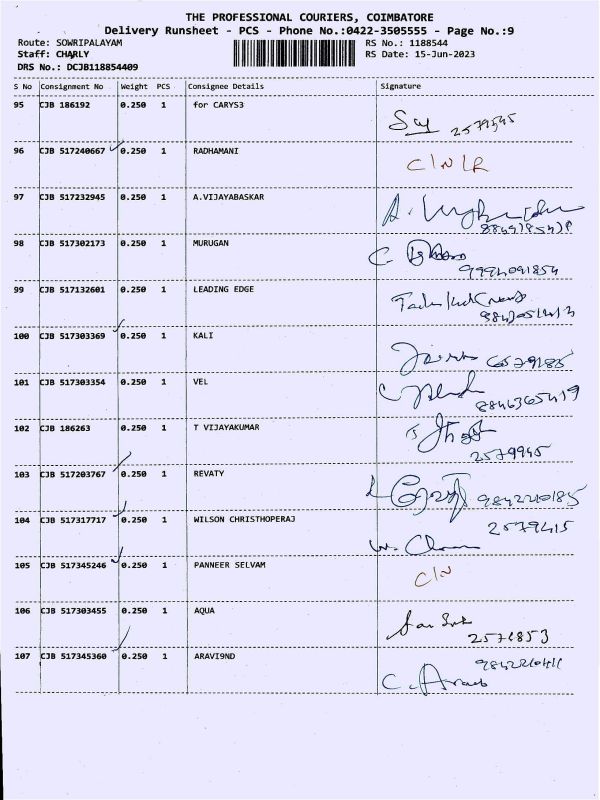 THE PROFESSIONAL COURIERS, COIMBATORE
Delivery Runsheet - PCS - Phone No.:0422-3505555 - Page No.:9
Route: SOWRIPALAYAM RS No.: 1188544
Staff: CHARLY RS Date: 15-Jun-2023
DRS No.: DCJB118854409
S No Consignment No Weight PCS Consignee Details Signature
95 CJB 186192 0.250 1 for CARYS3
2579545
96 CJB 517240667 0.250 1 RADHAMANI
C/N/R
97 CJB 517232945 0.250 1 A.VIJAYABASKAR
98 CJB 517302173 0.250 1 MURUGAN
9994091854
99 CJB 517132601 0.250 1 LEADING EDGE
100 CJB 517303369 0.250 1 KALI
6579185
101 CJB 517303354 0.250 1 VEL
8846365419
102 CJB 186263 0.250 1 T VIJAYAKUMAR
2579945
103 CJB 517203767 0.250 1 REVATY
9842210185
104 CJB 517317717 0.250 1 WILSON CHRISTHOPERAJ
2579415
105 CJB 517345246 0.250 1 PANNEER SELVAM
C/N
106 CJB 517303455 0.250 1 AQUA
107 CJB 517345360 0.250 1 ARAVI9ND